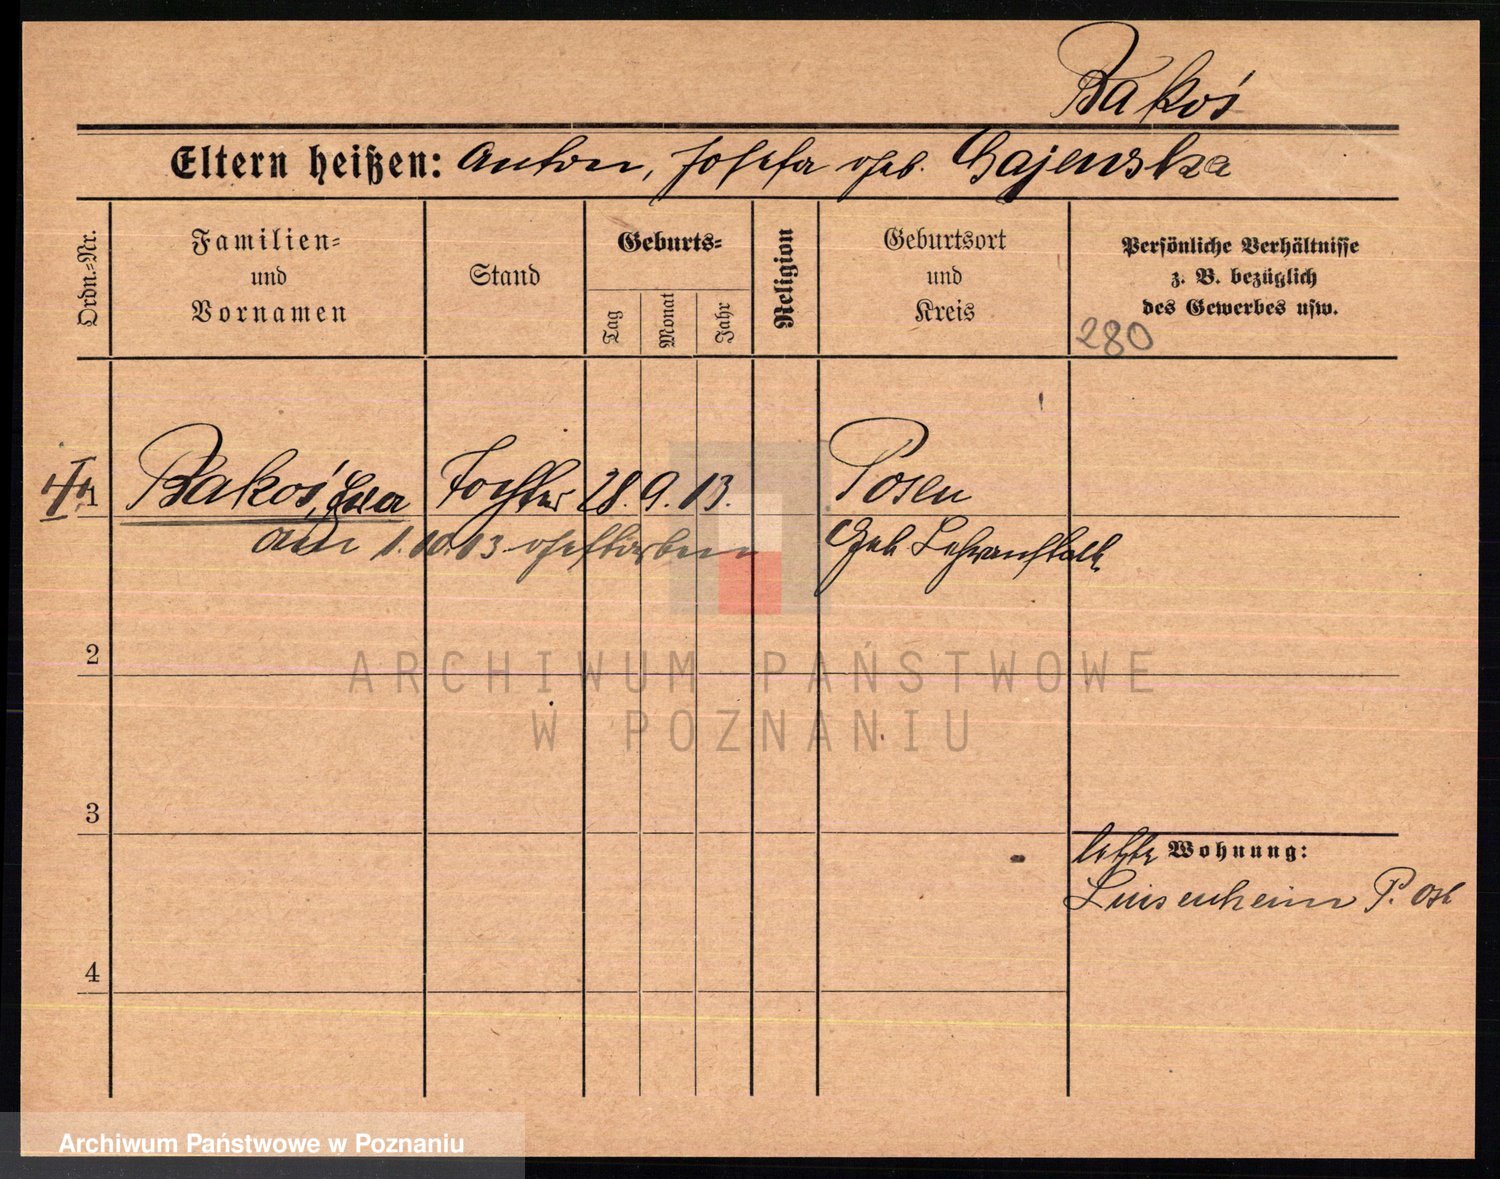 Bakoś
Eltern heißen: Anton, Josefa geb. Gajewska
Ordn.=Nr.
Familien=
und
Vornamen
Stand
Geburts=
Tag
Monat
Jahr
Religion
Geburtsort
und
Kreis
Persönliche Verhältnisse
z. B. bezüglich
des Gewerbes usw.
280
1 Bakoś, Eva Tochter 28. 9. 13. Posen
am 1. 10. 13 gestorben Geb. Lehranstalt
2
ARCHIWUM PAŃSTWOWE
W POZNANIU
3
letzte Wohnung:
Luisenheim P. Ost
4
Archiwum Państwowe w Poznaniu